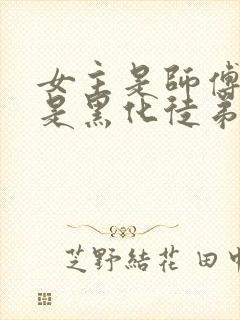 女主是師傅
是黑化徒弟
芝野結花 田中